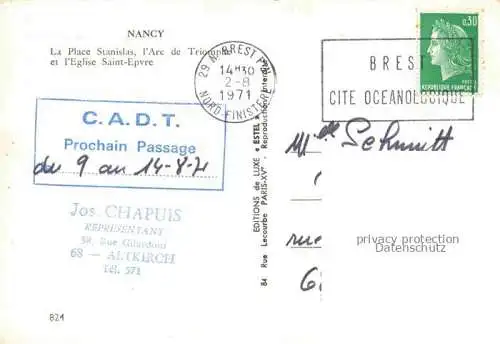 NANCY
La Place Stanislas, l'Arc de Triomphe
et l'Eglise Saint-Epvre
C.A.D.T.
Prochain Passage
du 9 au 14-8-71
Jos. CHAPUIS
REPRESENTANT
38, Rue Gilardoni
68 — ALTKIRCH
Tél. 571
824
29 N. BREST PPAL
14H30
2-8
1971
NORD-FINISTERE
EDITIONS de LUXE « ESTEL » - Reproduction interdite
84 Rue Lecourbe PARIS-XV
0,30
POSTES
REPUBLIQUE FRANÇAISE
BREST
CITE OCEANOLOGIQUE
Schmitt
rue
privacy protection
Datenschutz
6